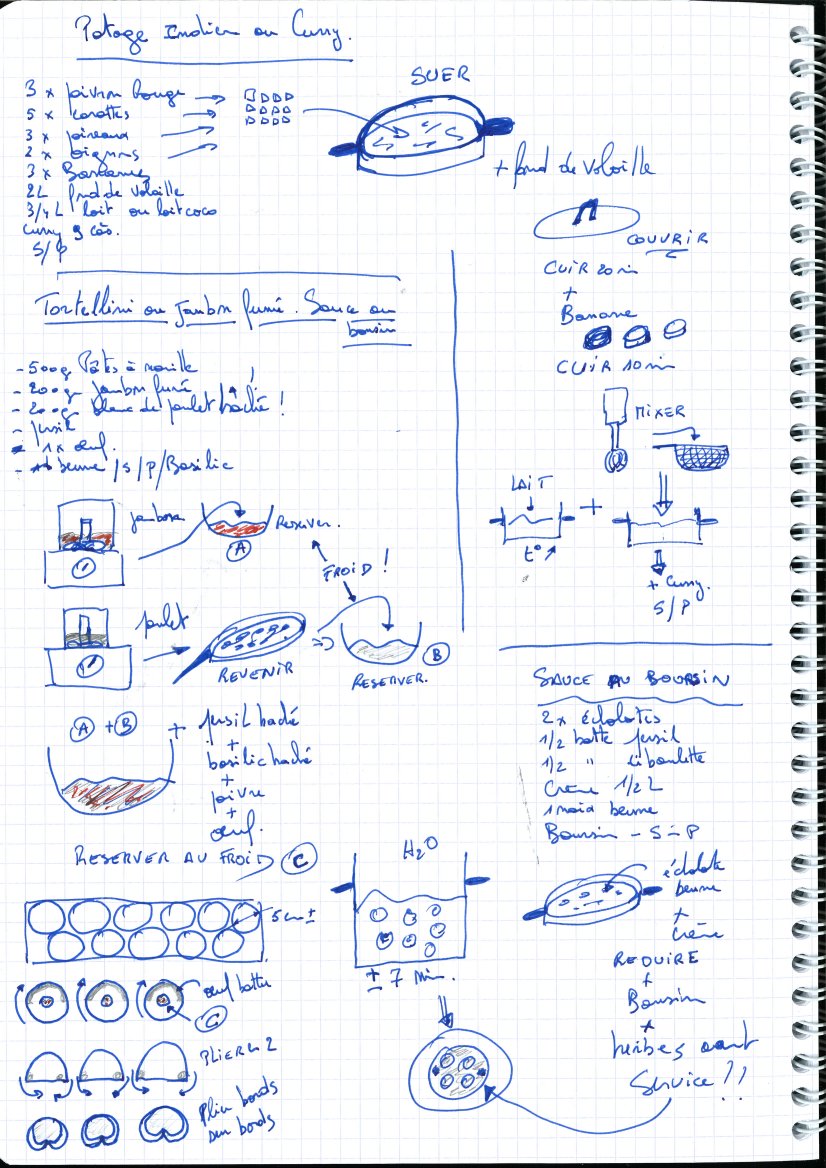 Potage Indien au Curry.
3 x poivron Rouge
5 x carottes
3 x poireaux
2 x oignons
3 x Bananes
2L fond de volaille
3/4 L lait ou lait coco
Curry 3 càs.
S/P
SUER
+ fond de volaille
COUVRIR
CUIR 20 min
+
Banane
CUIR 10 min
MIXER
LAIT
+
t°
+ Curry.
S/P
Tortellini au Jambon fumé. Sauce au
boursin
- 500g Pâtes à nouille
- 200gr Jambon fumé
- 200gr blanc de poulet haché !
- persil
- 1x œuf.
- beurre /S/P/Basilic
jambon
A
Reserver.
FROID !
poulet
REVENIR
B
RESERVER.
A + B
+ persil haché
+
basilic haché
+
poivre
+
œuf.
RESERVER AU FROID C
5cm ±
œuf battu
C
PLIER en 2
Plier bords
sur bords
H2O
± 7 min.
SAUCE AU BOURSIN
2x échalotes
1/2 botte persil
1/2 " ciboulette
Crème 1/2 L
1 noix beurre
Boursin - S - P
échalote
beurre
+
Crème
REDUIRE
+
Boursin
+
herbes avant
Service !!